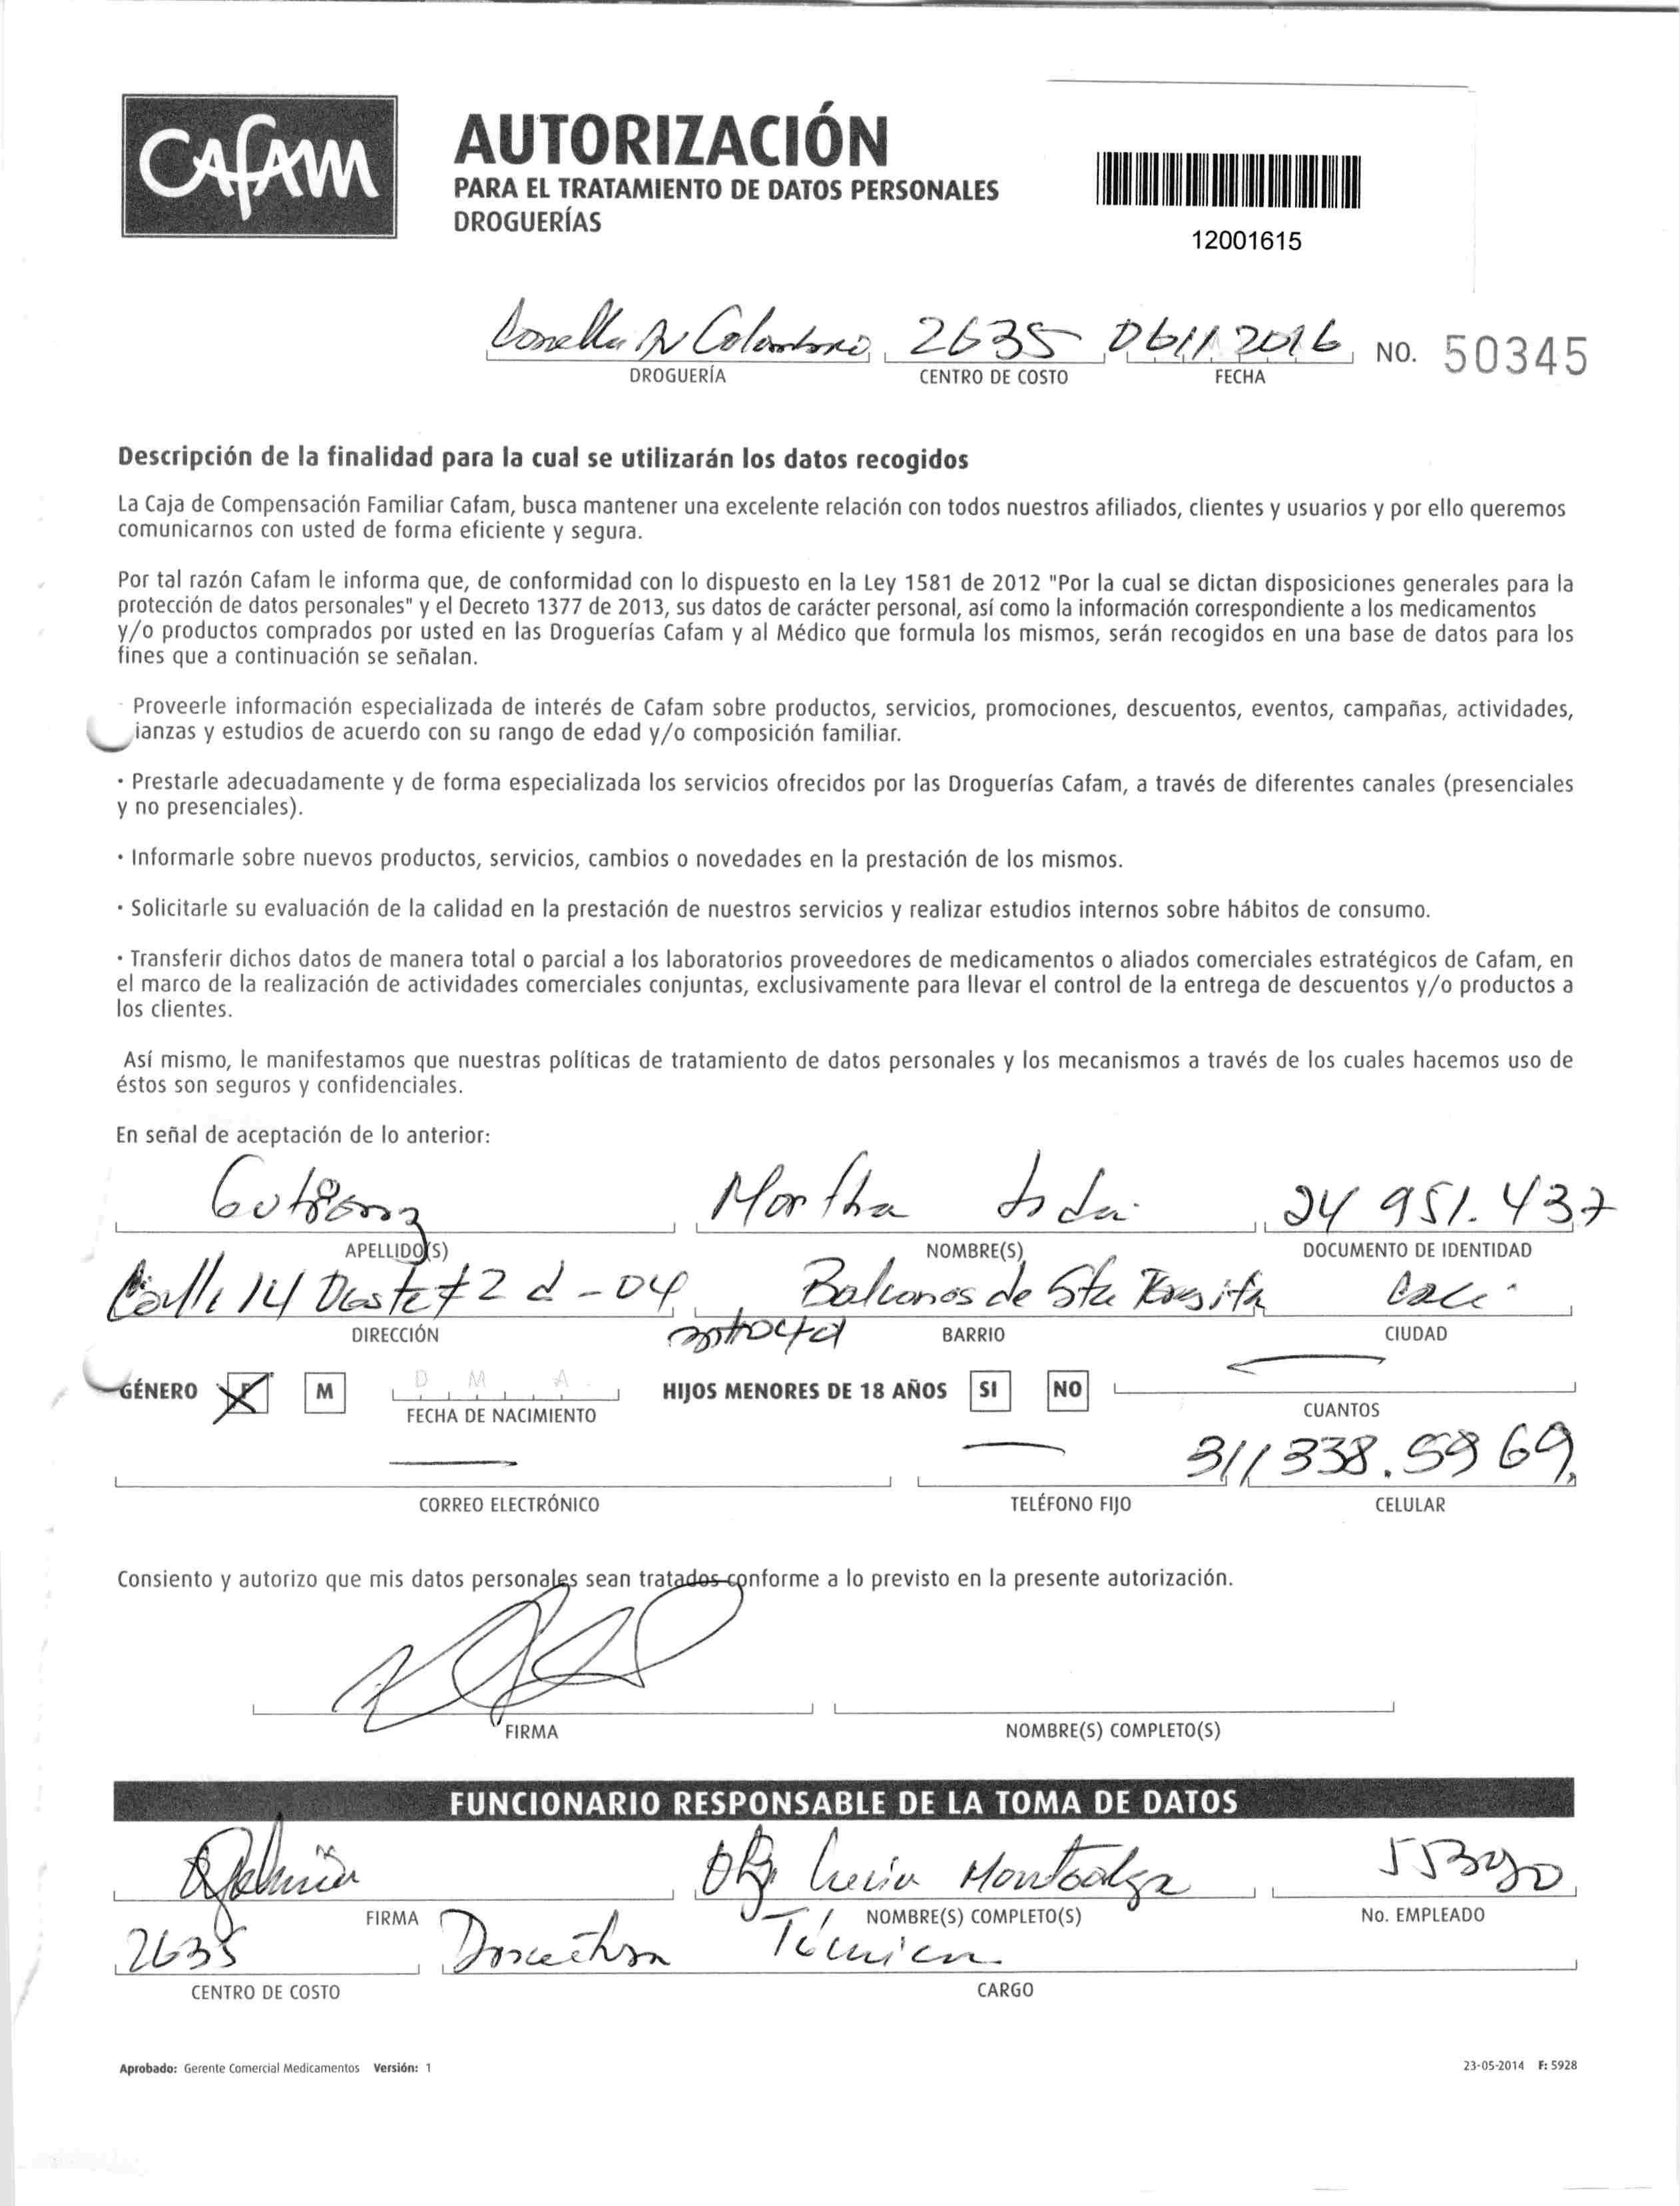 CAFAM
AUTORIZACIÓN
PARA EL TRATAMIENTO DE DATOS PERSONALES
DROGUERÍAS
12001615
2635 06112016 NO. 50345
DROGUERÍA CENTRO DE COSTO FECHA
Descripción de la finalidad para la cual se utilizarán los datos recogidos
La Caja de Compensación Familiar Cafam, busca mantener una excelente relación con todos nuestros afiliados, clientes y usuarios y por ello queremos
comunicarnos con usted de forma eficiente y segura.
Por tal razón Cafam le informa que, de conformidad con lo dispuesto en la Ley 1581 de 2012 "Por la cual se dictan disposiciones generales para la
protección de datos personales" y el Decreto 1377 de 2013, sus datos de carácter personal, así como la información correspondiente a los medicamentos
y/o productos comprados por usted en las Droguerías Cafam y al Médico que formula los mismos, serán recogidos en una base de datos para los
fines que a continuación se señalan.
Proveerle información especializada de interés de Cafam sobre productos, servicios, promociones, descuentos, eventos, campañas, actividades,
ianzas y estudios de acuerdo con su rango de edad y/o composición familiar.
· Prestarle adecuadamente y de forma especializada los servicios ofrecidos por las Droguerías Cafam, a través de diferentes canales (presenciales
y no presenciales).
· Informarle sobre nuevos productos, servicios, cambios o novedades en la prestación de los mismos.
· Solicitarle su evaluación de la calidad en la prestación de nuestros servicios y realizar estudios internos sobre hábitos de consumo.
· Transferir dichos datos de manera total o parcial a los laboratorios proveedores de medicamentos o aliados comerciales estratégicos de Cafam, en
el marco de la realización de actividades comerciales conjuntas, exclusivamente para llevar el control de la entrega de descuentos y/o productos a
los clientes.
Así mismo, le manifestamos que nuestras políticas de tratamiento de datos personales y los mecanismos a través de los cuales hacemos uso de
éstos son seguros y confidenciales.
En señal de aceptación de lo anterior:
Martha 24 951.437
APELLIDO(S) NOMBRE(S) DOCUMENTO DE IDENTIDAD
Calle 14 Oeste # 2 d - 04 Balcones de Sta Cali
DIRECCIÓN BARRIO CIUDAD
GÉNERO F M D M A HIJOS MENORES DE 18 AÑOS SI NO
FECHA DE NACIMIENTO CUANTOS
311 338.5969
CORREO ELECTRÓNICO TELÉFONO FIJO CELULAR
Consiento y autorizo que mis datos personales sean tratados conforme a lo previsto en la presente autorización.
FIRMA NOMBRE(S) COMPLETO(S)
FUNCIONARIO RESPONSABLE DE LA TOMA DE DATOS
Lucia
FIRMA NOMBRE(S) COMPLETO(S) No. EMPLEADO
2635 Directora Técnica
CENTRO DE COSTO CARGO
Aprobado: Gerente Comercial Medicamentos Versión: 1 23-05-2014 F: 5928